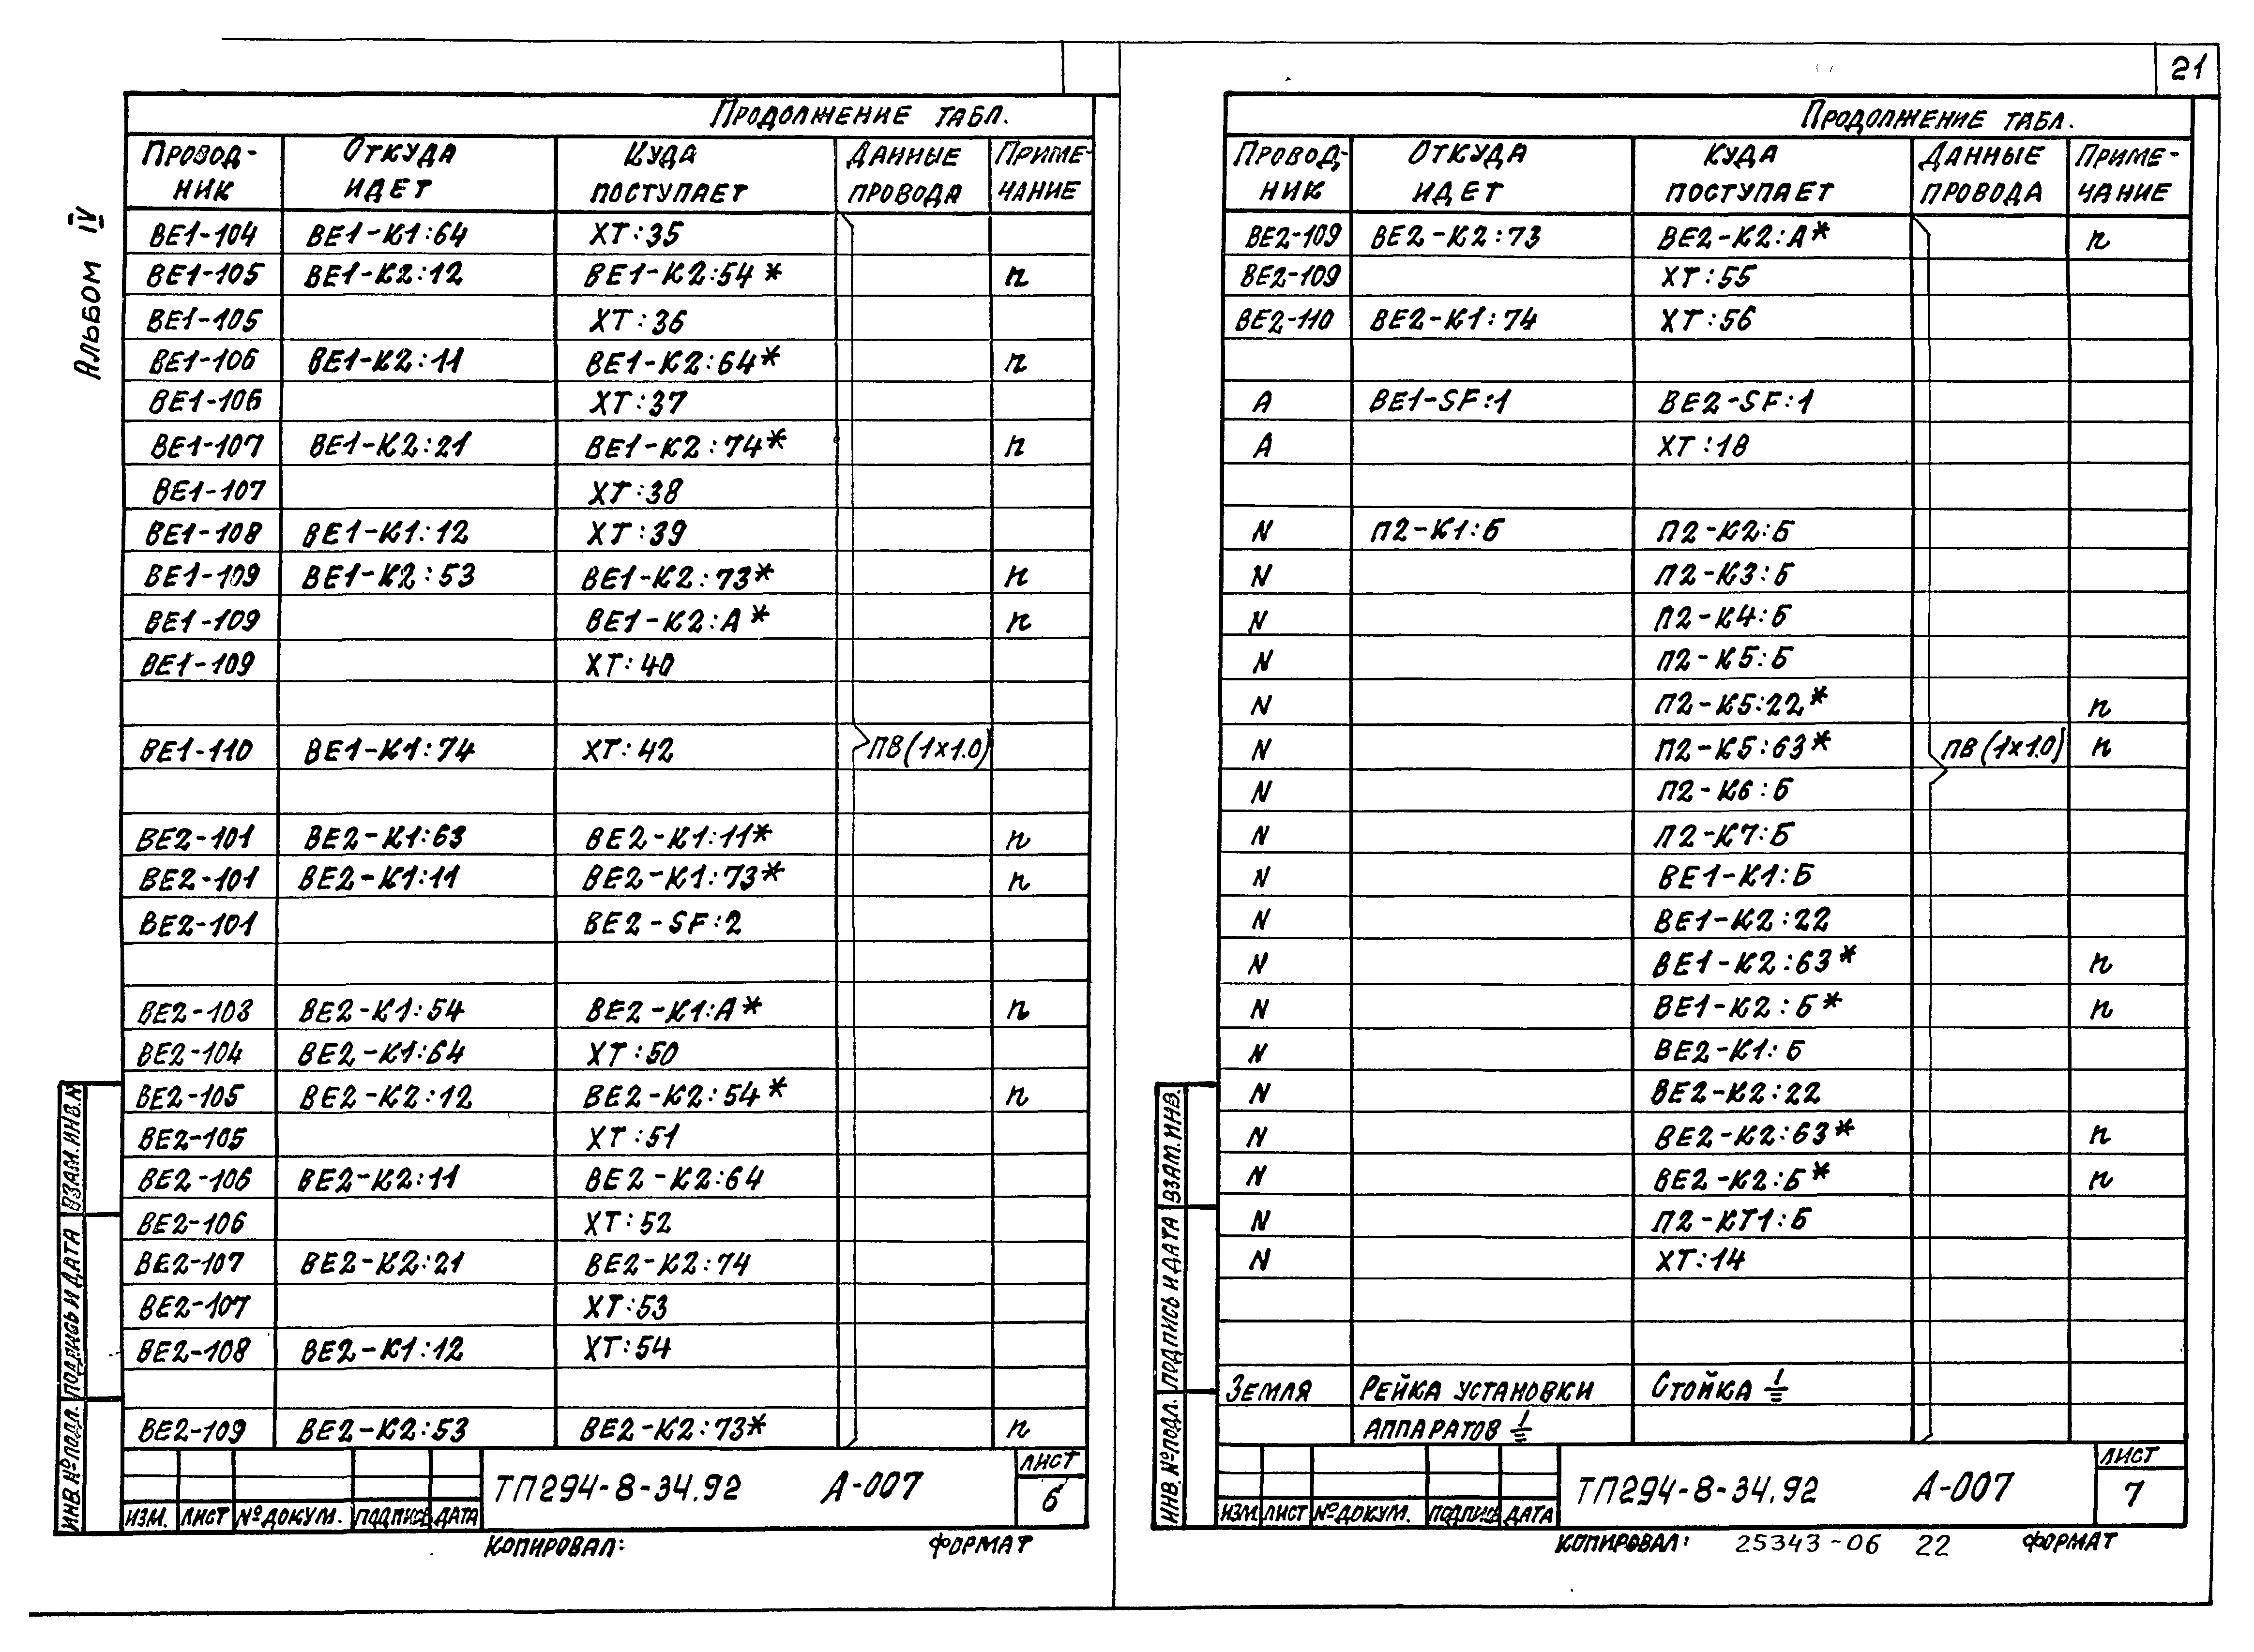 21
Альбом IV
Продолжение табл.
Провод-ник Откуда идет Куда поступает Данные провода Приме-чание
ВЕ1-104 ВЕ1-К1:64 ХТ:35
ВЕ1-105 ВЕ1-К2:12 ВЕ1-К2:54* п
ВЕ1-105 ХТ:36
ВЕ1-106 ВЕ1-К2:11 ВЕ1-К2:64* п
ВЕ1-106 ХТ:37
ВЕ1-107 ВЕ1-К2:21 ВЕ1-К2:74* п
ВЕ1-107 ХТ:38
ВЕ1-108 ВЕ1-К1:12 ХТ:39
ВЕ1-109 ВЕ1-К2:53 ВЕ1-К2:73* п
ВЕ1-109 ВЕ1-К2:А* п
ВЕ1-109 ХТ:40
ВЕ1-110 ВЕ1-К1:74 ХТ:42 ПВ(1х1.0)
ВЕ2-101 ВЕ2-К1:63 ВЕ2-К1:11* п
ВЕ2-101 ВЕ2-К1:11 ВЕ2-К1:73* п
ВЕ2-101 ВЕ2-SF:2
ВЕ2-103 ВЕ2-К1:54 ВЕ2-К1:А* п
ВЕ2-104 ВЕ2-К1:64 ХТ:50
ВЕ2-105 ВЕ2-К2:12 ВЕ2-К2:54* п
ВЕ2-105 ХТ:51
ВЕ2-106 ВЕ2-К2:11 ВЕ2-К2:64
ВЕ2-106 ХТ:52
ВЕ2-107 ВЕ2-К2:21 ВЕ2-К2:74
ВЕ2-107 ХТ:53
ВЕ2-108 ВЕ2-К1:12 ХТ:54
ВЕ2-109 ВЕ2-К2:53 ВЕ2-К2:73* п
Инв.№подл. Подпись и дата Взам.инв.№
Изм. Лист №докум. Подпись Дата
ТП294-8-34.92 А-007
Лист
6
Копировал: Формат
Продолжение табл.
Провод-ник Откуда идет Куда поступает Данные провода Приме-чание
ВЕ2-109 ВЕ2-К2:73 ВЕ2-К2:А* п
ВЕ2-109 ХТ:55
ВЕ2-110 ВЕ2-К1:74 ХТ:56
А ВЕ1-SF:1 ВЕ2-SF:1
А ХТ:18
N П2-К1:Б П2-К2:Б
N П2-К3:Б
N П2-К4:Б
N П2-К5:Б
N П2-К5:22* п
N П2-К5:63* ПВ(1х1.0) п
N П2-К6:Б
N П2-К7:Б
N ВЕ1-К1:Б
N ВЕ1-К2:22
N ВЕ1-К2:63* п
N ВЕ1-К2:Б* п
N ВЕ2-К1:Б
N ВЕ2-К2:22
N ВЕ2-К2:63* п
N ВЕ2-К2:Б* п
N П2-КТ1:Б
N ХТ:14
Земля Рейка установки Стойка ⏚
аппаратов ⏚
Инв.№подл. Подпись и дата Взам.инв.
Изм. Лист №докум. Подпись Дата
ТП294-8-34.92 А-007
Лист
7
Копировал: 25343-06 22 Формат